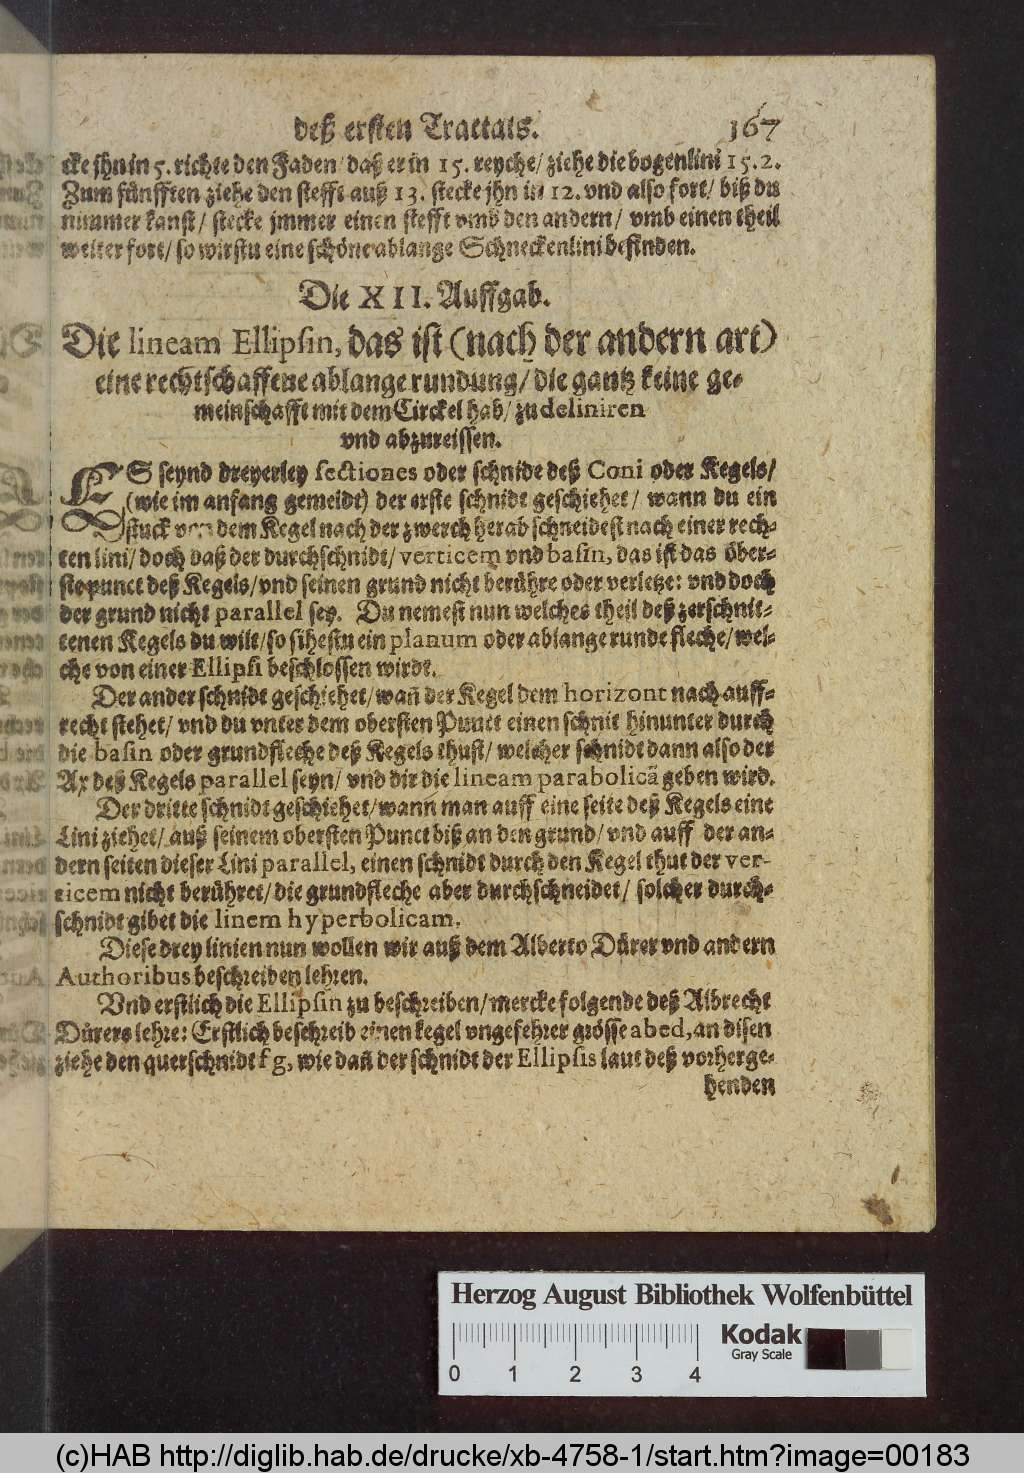 deß ersten Tractats. 167
cke jhn in 5. richte den Faden/ daß er in 15. reyche/ ziehe die bogenlini 15. 2.
Zum fünfften ziehe den stefft auß 13. stecke jhn in 12. vnd also fort/ biß du
nimmer kanst/ stecke jmmer einen stefft vmb den andern/ vmb einen theil
weiter fort/ so wirstu eine schöne ablange Schneckenlini befinden.
Die XII. Auffgab.
Die lineam Ellipsin, das ist (nach der andern art)
eine rechtschaffene ablange rundung/ die gantz keine ge-
meinschafft mit dem Circkel hab/ zu deliniren
vnd abzureissen.
ES seynd dreyerley sectiones oder schnide deß Coni oder Kegels/
(wie im anfang gemeldt) der erste schnidt geschiehet/ wann du ein
stuck von dem Kegel nach der zwerch herab schneidest nach einer rech-
ten lini/ doch daß der durchschnidt/ verticem vnd basin, das ist das öber-
stepunct deß Kegels/ vnd seinen grund nicht berühre oder verletze: vnd doch
der grund nicht parallel sey. Du nemest nun welches theil deß zerschnit-
tenen Kegels du wilt/ so sihestu ein planum oder ablange runde fleche/ wel-
che von einer Ellipsi beschlossen wirdt.
Der ander schnidt geschiehet/ wañ der Kegel dem horizont nach auff-
recht stehet/ vnd du vnter dem obersten Punct einen schnit hinunter durch
die basin oder grundfleche deß Kegels thust/ welcher schnidt dann also der
Ax deß Kegels parallel seyn/ vnd dir die lineam parabolicã geben wird.
Der dritte schnidt geschiehet/ wann man auff eine seite deß Kegels eine
Lini ziehet/ auß seinem obersten Punct biß an den grund/ vnd auff der an-
dern seiten dieser Lini parallel, einen schnidt durch den Kegel thut der ver-
ticem nicht berühret/ die grundfleche aber durchschneidet/ solcher durch-
schnidt gibet die linem hyperbolicam.
Diese drey linien nun wollen wir auß dem Alberto Dürer vnd andern
Authoribus beschreiben lehren.
Vnd erstlich die Ellipsin zu beschreiben/ mercke folgende deß Albrecht
Dürers lehre: Erstlich beschreib einen kegel vngefehrer grösse abcd, an disen
ziehe den querschnidt fg, wie dañ der schnidt der Ellipsis laut deß vorherge-
henden
Herzog August Bibliothek Wolfenbüttel
0 1 2 3 4
Kodak
Gray Scale
(c)HAB http://diglib.hab.de/drucke/xb-4758-1/start.htm?image=00183